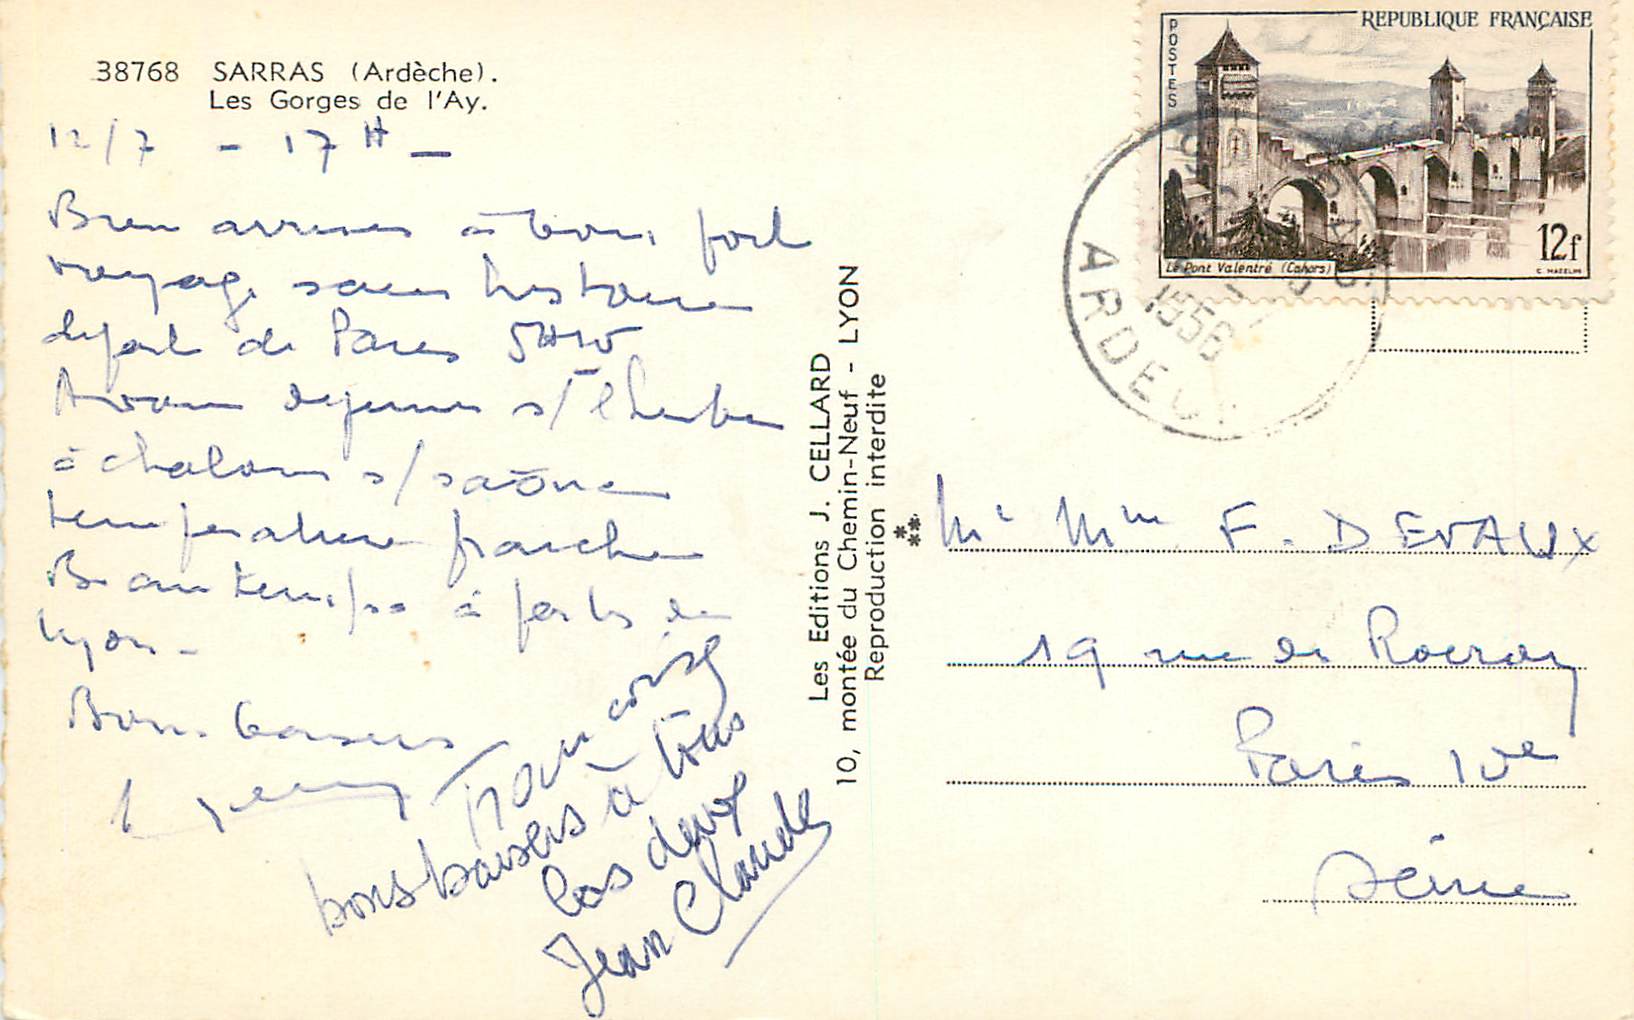 38768 SARRAS (Ardèche).
Les Gorges de l'Ay.
12/7 - 17H -
Bien arrivés à bon port
voyage sans histoire
départ de Paris 5H10
Avons dejeuner s/ l'herbe
à chalon s/ saône
temperature fraiche
Beau temps à partir de
Lyon -
Bons baisers
Françoise
bons baisers à tous
los deux
Jean Claude
Les Editions J. CELLARD
10, montée du Chemin-Neuf - LYON
Reproduction interdite
REPUBLIQUE FRANÇAISE
POSTES
Le Pont Valentré (Cahors)
12f
C. MAZELIN
SARRAS
1956
ARDECHE
Mr Mme F. DEVAUX
19 rue de Rocroy
Paris 10e
Seine